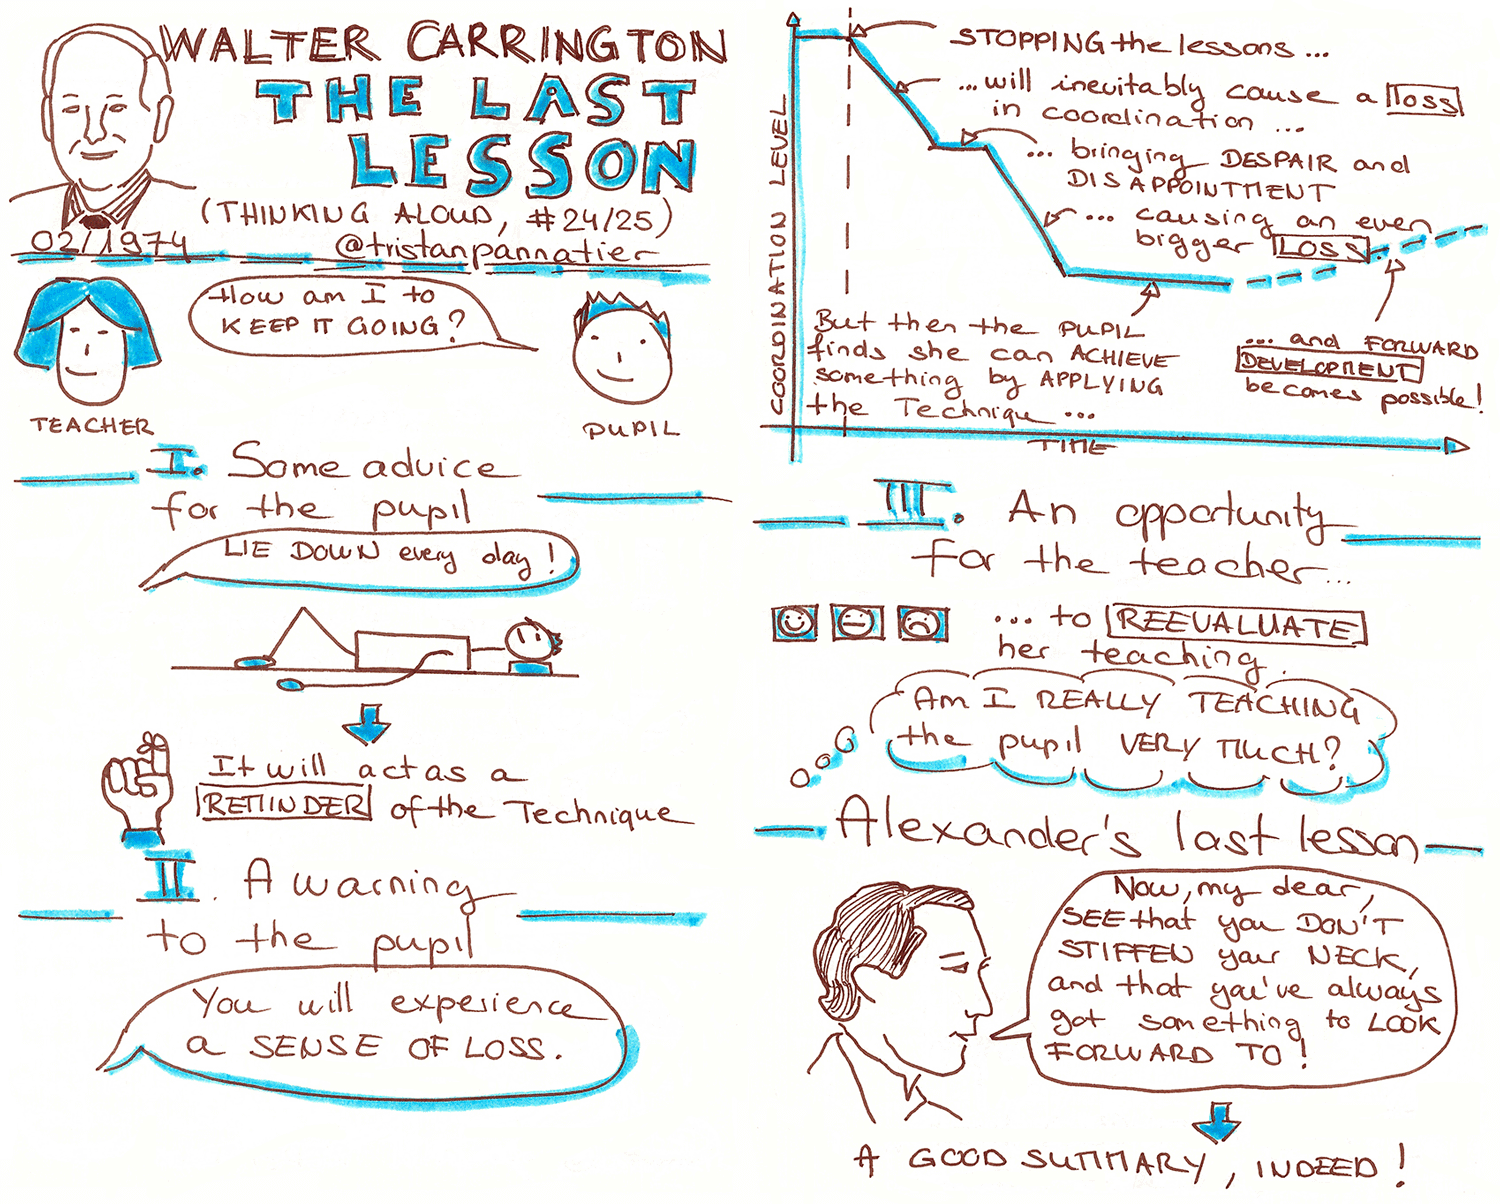 WALTER CARRINGTON
THE LAST
LESSON
(THINKING ALOUD, #24/25)
02/1974
@tristanpannatier
How am I to
KEEP IT GOING?
TEACHER
PUPIL
I. Some advice
for the pupil
LIE DOWN every day!
It will act as a
REMINDER of the Technique
II. A warning
to the pupil
You will experience
a SENSE OF LOSS.
COORDINATION LEVEL
STOPPING the lessons ...
...will inevitably cause a loss
in coordination ...
... bringing DESPAIR and
DISAPPOINTMENT
... causing an even
bigger LOSS.
But then the PUPIL
finds she can ACHIEVE
something by APPLYING
the Technique ...
... and FORWARD
DEVELOPMENT
becomes possible!
TIME
III. An opportunity
for the teacher...
... to REEVALUATE
her teaching.
Am I REALLY TEACHING
the pupil VERY MUCH?
Alexander's last lesson
Now, my dear,
SEE that you DON'T
STIFFEN your NECK,
and that you've always
got something to LOOK
FORWARD TO!
A GOOD SUMMARY, INDEED!